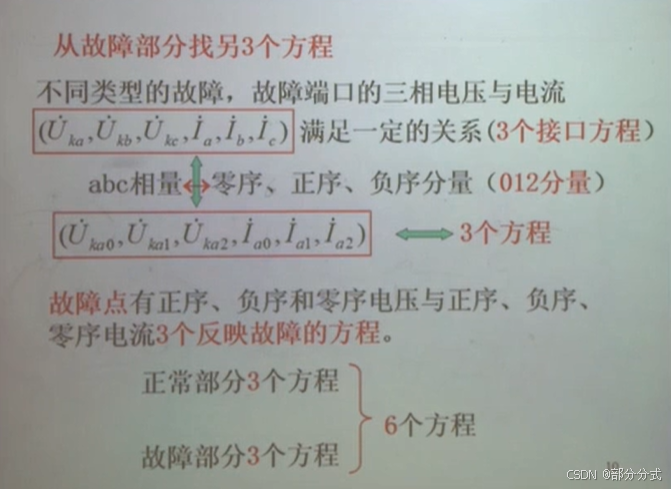 从故障部分找另3个方程
不同类型的故障，故障端口的三相电压与电流
(U̇ka,U̇kb,U̇kc,İa,İb,İc) 满足一定的关系(3个接口方程)
abc相量↔零序、正序、负序分量（012分量）
(U̇ka0,U̇ka1,U̇ka2,İa0,İa1,İa2) ↔ 3个方程
故障点有正序、负序和零序电压与正序、负序、
零序电流3个反映故障的方程。
正常部分3个方程
6个方程
故障部分3个方程
CSDN @部分分式